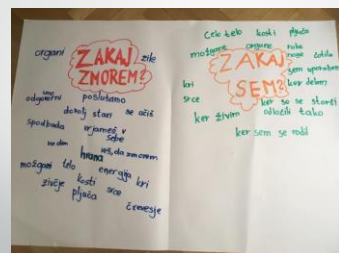 organi
ZAKAJ
ZMOREM?
žile
odgovorni
poslušamo
dovolj star
se učiš
spodbuda
verjameš v
sebe
hrana
veš, da zmorem
možgani
telo
energija
kri
živčje
kosti
srce
pljuča
črevesje
Celo telo
kosti
pljuča
možgani
organi
roke
noge
čutila
ZAKAJ
SEM?
sem uporaben
kri
ker delam
srce
ker so se starši
odločili tako
ker živim
ker sem se rodil